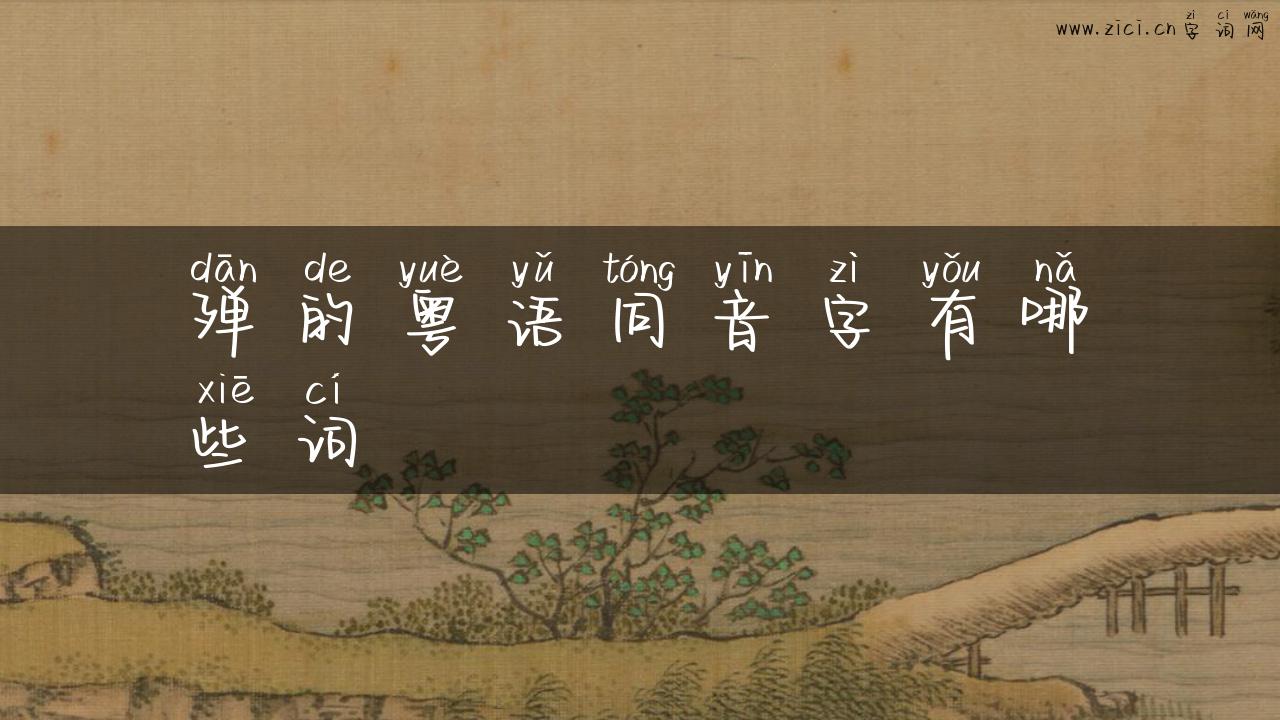 zì cí wǎng
www.zici.cn字词网
dān de yuè yǔ tóng yīn zì yǒu nǎ
殚的粤语同音字有哪
xiē cí
些词